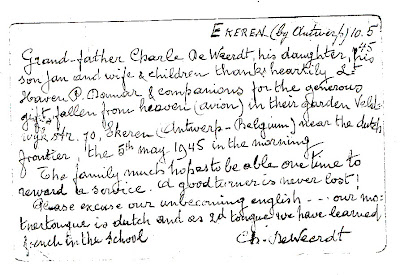 EKEREN (by Antwerp) 10.5
45
Grand-father Charle De Weerdt, his daughter, his
son Jan and wife & children thanks heartily Lt
Haven P. & companions for the generous
gift, fallen from heaven (avion) in their garden Veld-
wijk str. 70, Ekeren (Antwerp-Belgium) near the dutch
frontier the 5th may 1945 in the morning
The family much hopes to be able one time to
reward a service. (a good turner is never lost!
Please excuse our unbecoming english --- our mo-
thertongue is dutch and as 2d tongue we have learned
french in the school
Ch. DeWeerdt